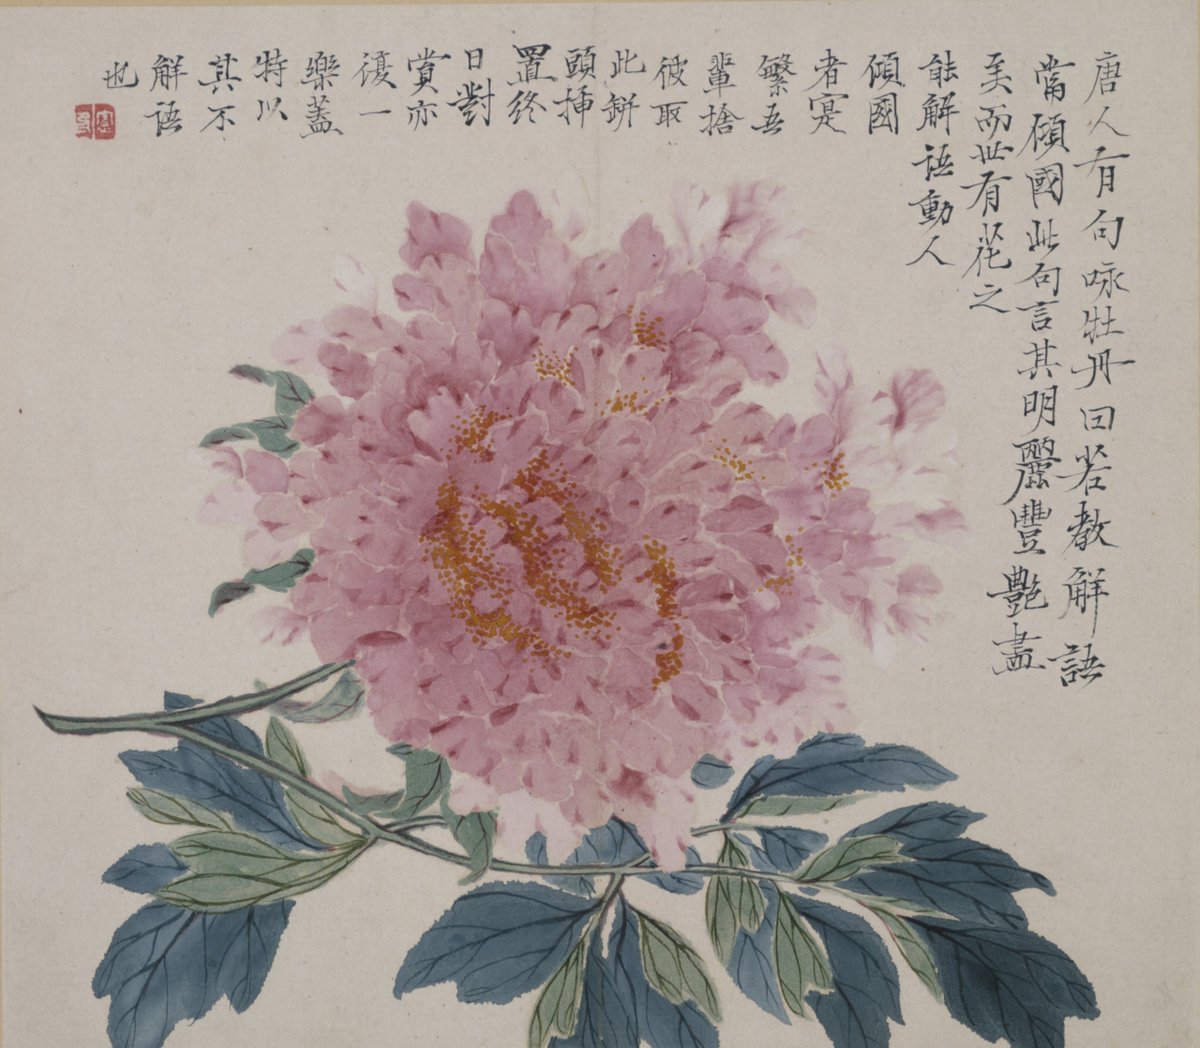 唐人有句咏牡丹曰若教解語
當傾國此句言其明麗豐艷盡
美而世有花之
能解語動人
傾國
者寔
繁吾
輩捨
彼取
此缾
頭挿
置終
日對
賞亦
復一
樂蓋
特以
其不
解語
也